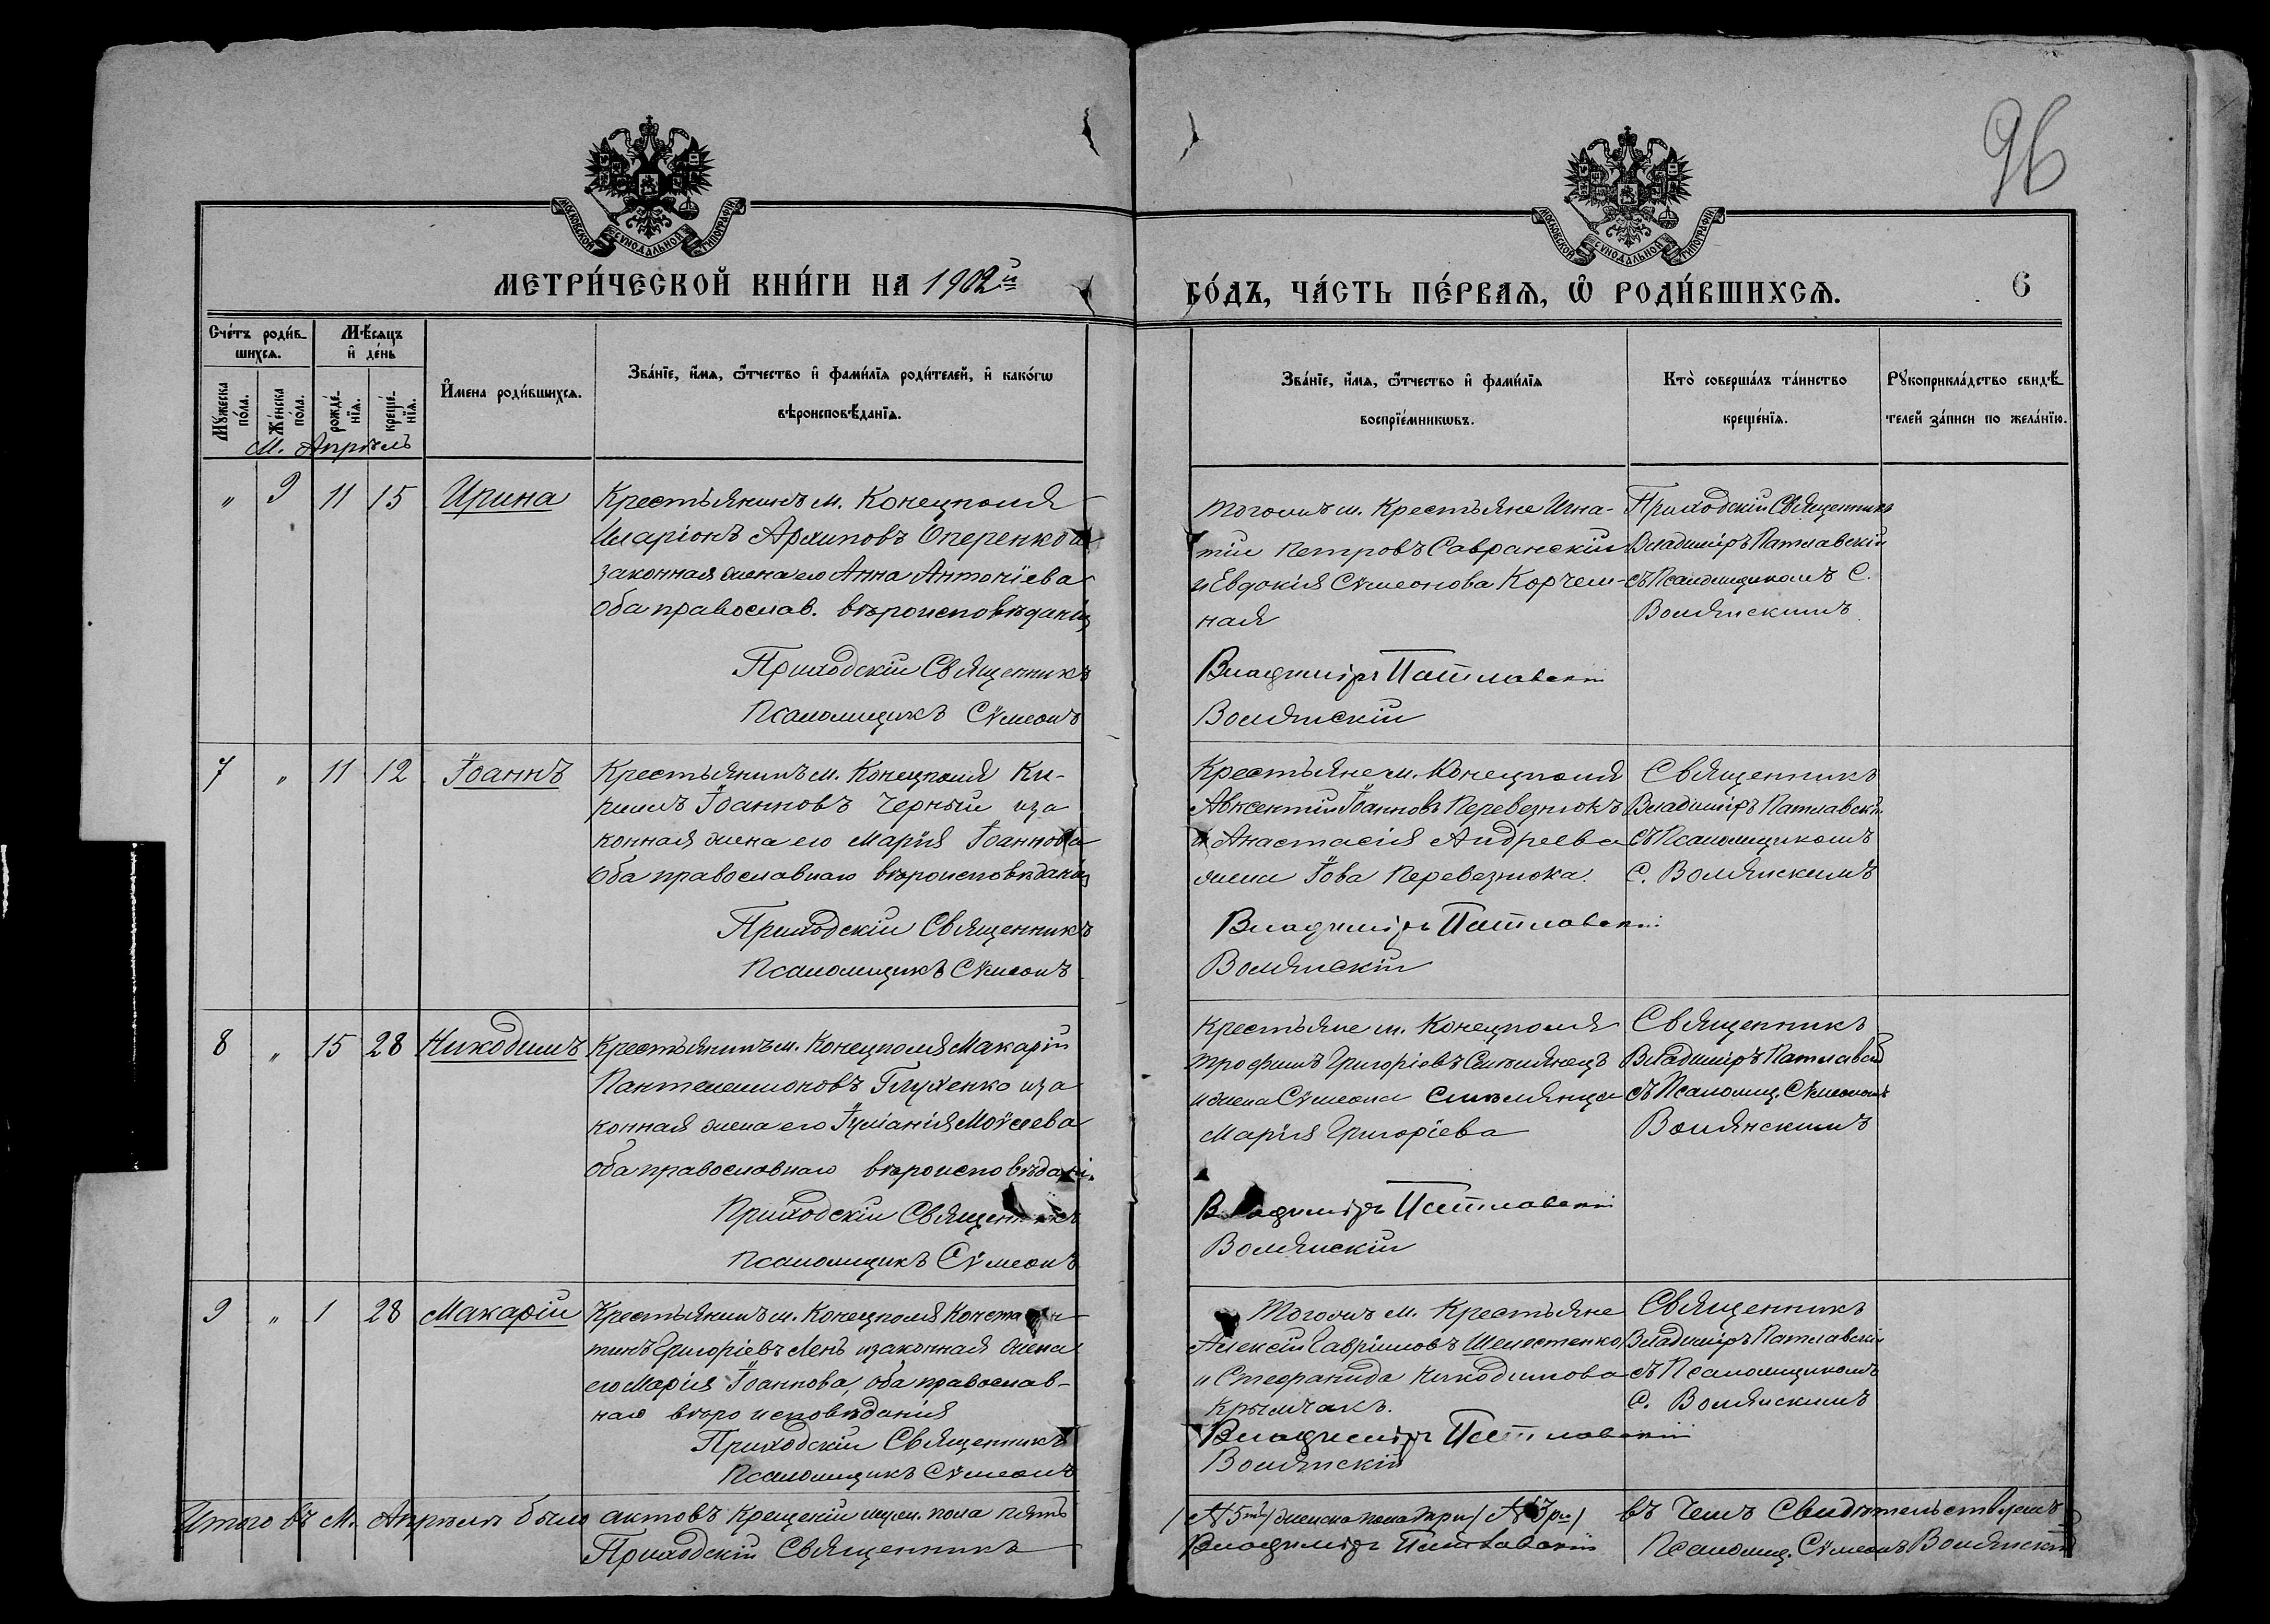 96
МОСКОВСКОЙ СѴНОДАЛЬНОЙ ТИПОГРАФІИ
МОСКОВСКОЙ СѴНОДАЛЬНОЙ ТИПОГРАФІИ
МЕТРИ́ЧЕСКОЙ КНИ́ГИ НА 1902й
ГО́ДЪ, ЧА́СТЬ ПЕ́РВАѦ, Ѡ РОДИ́ВШИХСѦ.
6
Сче́тъ роди́в-
шихсѧ.
Мѣ́сѧцъ
и де́нь
Мꙋ́жеска
по́ла.
Же́нска
по́ла.
рожде́-
нїѧ.
креще́-
нїѧ.
Имена роди́вшихсѧ.
Зва́нїе, и́мѧ, ѻ́тчество и фами́лїѧ роди́телей, и како́гѡ
вѣроисповѣ́данїѧ.
Зва́нїе, и́мѧ, ѻ́тчество и фами́лїѧ
воспрїе́мникѡвъ.
Кто̀ соверша́лъ та́инство
креще́нїѧ.
Рꙋкоприкла́дство свидѣ́-
телей за́писи по жела́нїю.
М. Апрѣль
" 9 11 15 Ирина
Крестьянинъ м. Конецполя
Иларіонъ Архиповъ Оперенко и
законная жена его Анна Антоніева
оба православ. вѣроисповѣданія
Приходскій Священникъ
Псаломщикъ Сѵмеонъ
Тогожъ м. Крестьяне Игна-
тій Петровъ Савранскій
и Евдокія Сѵмеонова Корчем-
ная
Владиміръ Патлавскій
Волянскій
Приходскій Священникъ
Владиміръ Патлавскій
съ Псаломщикомъ С.
Волянскимъ
7 " 11 12 Іоаннъ
Крестьянинъ м. Конецполя Ки-
рилъ Іоанновъ Черный и за
конная жена его Марія Іоаннова
Оба православнаго вѣроисповѣданія
Приходскій Священникъ
Псаломщикъ Сѵмеонъ
Крестьяне м. Конецполя
Авксентій Іоанновъ Перевезнюкъ
и Анастасія Андреева
жена Іова Перевезнюка.
Владиміръ Патлавскій
Волянскій
Священникъ
Владиміръ Патлавскій
съ Псаломщикомъ
С. Волянскимъ
8 " 15 28 Никодимъ
Крестьянинъ м. Конецполя Макарій
Пантелеимоновъ Глухенко и за
конная жена его Іуліанія Моѵсеева
оба православнаго вѣроисповѣдані.
Приходскій Священникъ
Псаломщикъ Сѵмеонъ
Крестьяне м. Конецполя
Трофимъ Григоріевъ Смѣлянецъ
и жена Сѵмеона Смѣлянца
Марія Григоріева
Владиміръ Патлавскій
Волянскій
Священникъ
Владиміръ Патлавскій
съ Псаломщ. Сѵмеономъ
Волянскимъ
9 " 1 28 Макарій
Крестьянинъ м. Конецполя Констан
тинъ Григоріевъ Лень и законная жена
его Марія Іоаннова, оба православ-
наго вѣро исповѣданія
Приходскій Священникъ
Псаломщикъ Сѵмеонъ
Тогожъ м. Крестьяне
Алексій Гавріиловъ Шелестенко
и Стефанида Никодимова
Крымчакъ.
Владиміръ Патлавскій
Волянскій
Священникъ
Владиміръ Патлавскій
съ Псаломщикомъ
С. Волянскимъ
Итого въ М. Апрѣлѣ было актовъ крещеній муж. пола пять
/№ 5ть/ женска пола три /№ 3ри/ въ чемъ Свидѣтельствуемъ
Приходскій Священникъ
Владиміръ Патлавскій
Псаломщ. Сѵмеонъ Волянскій